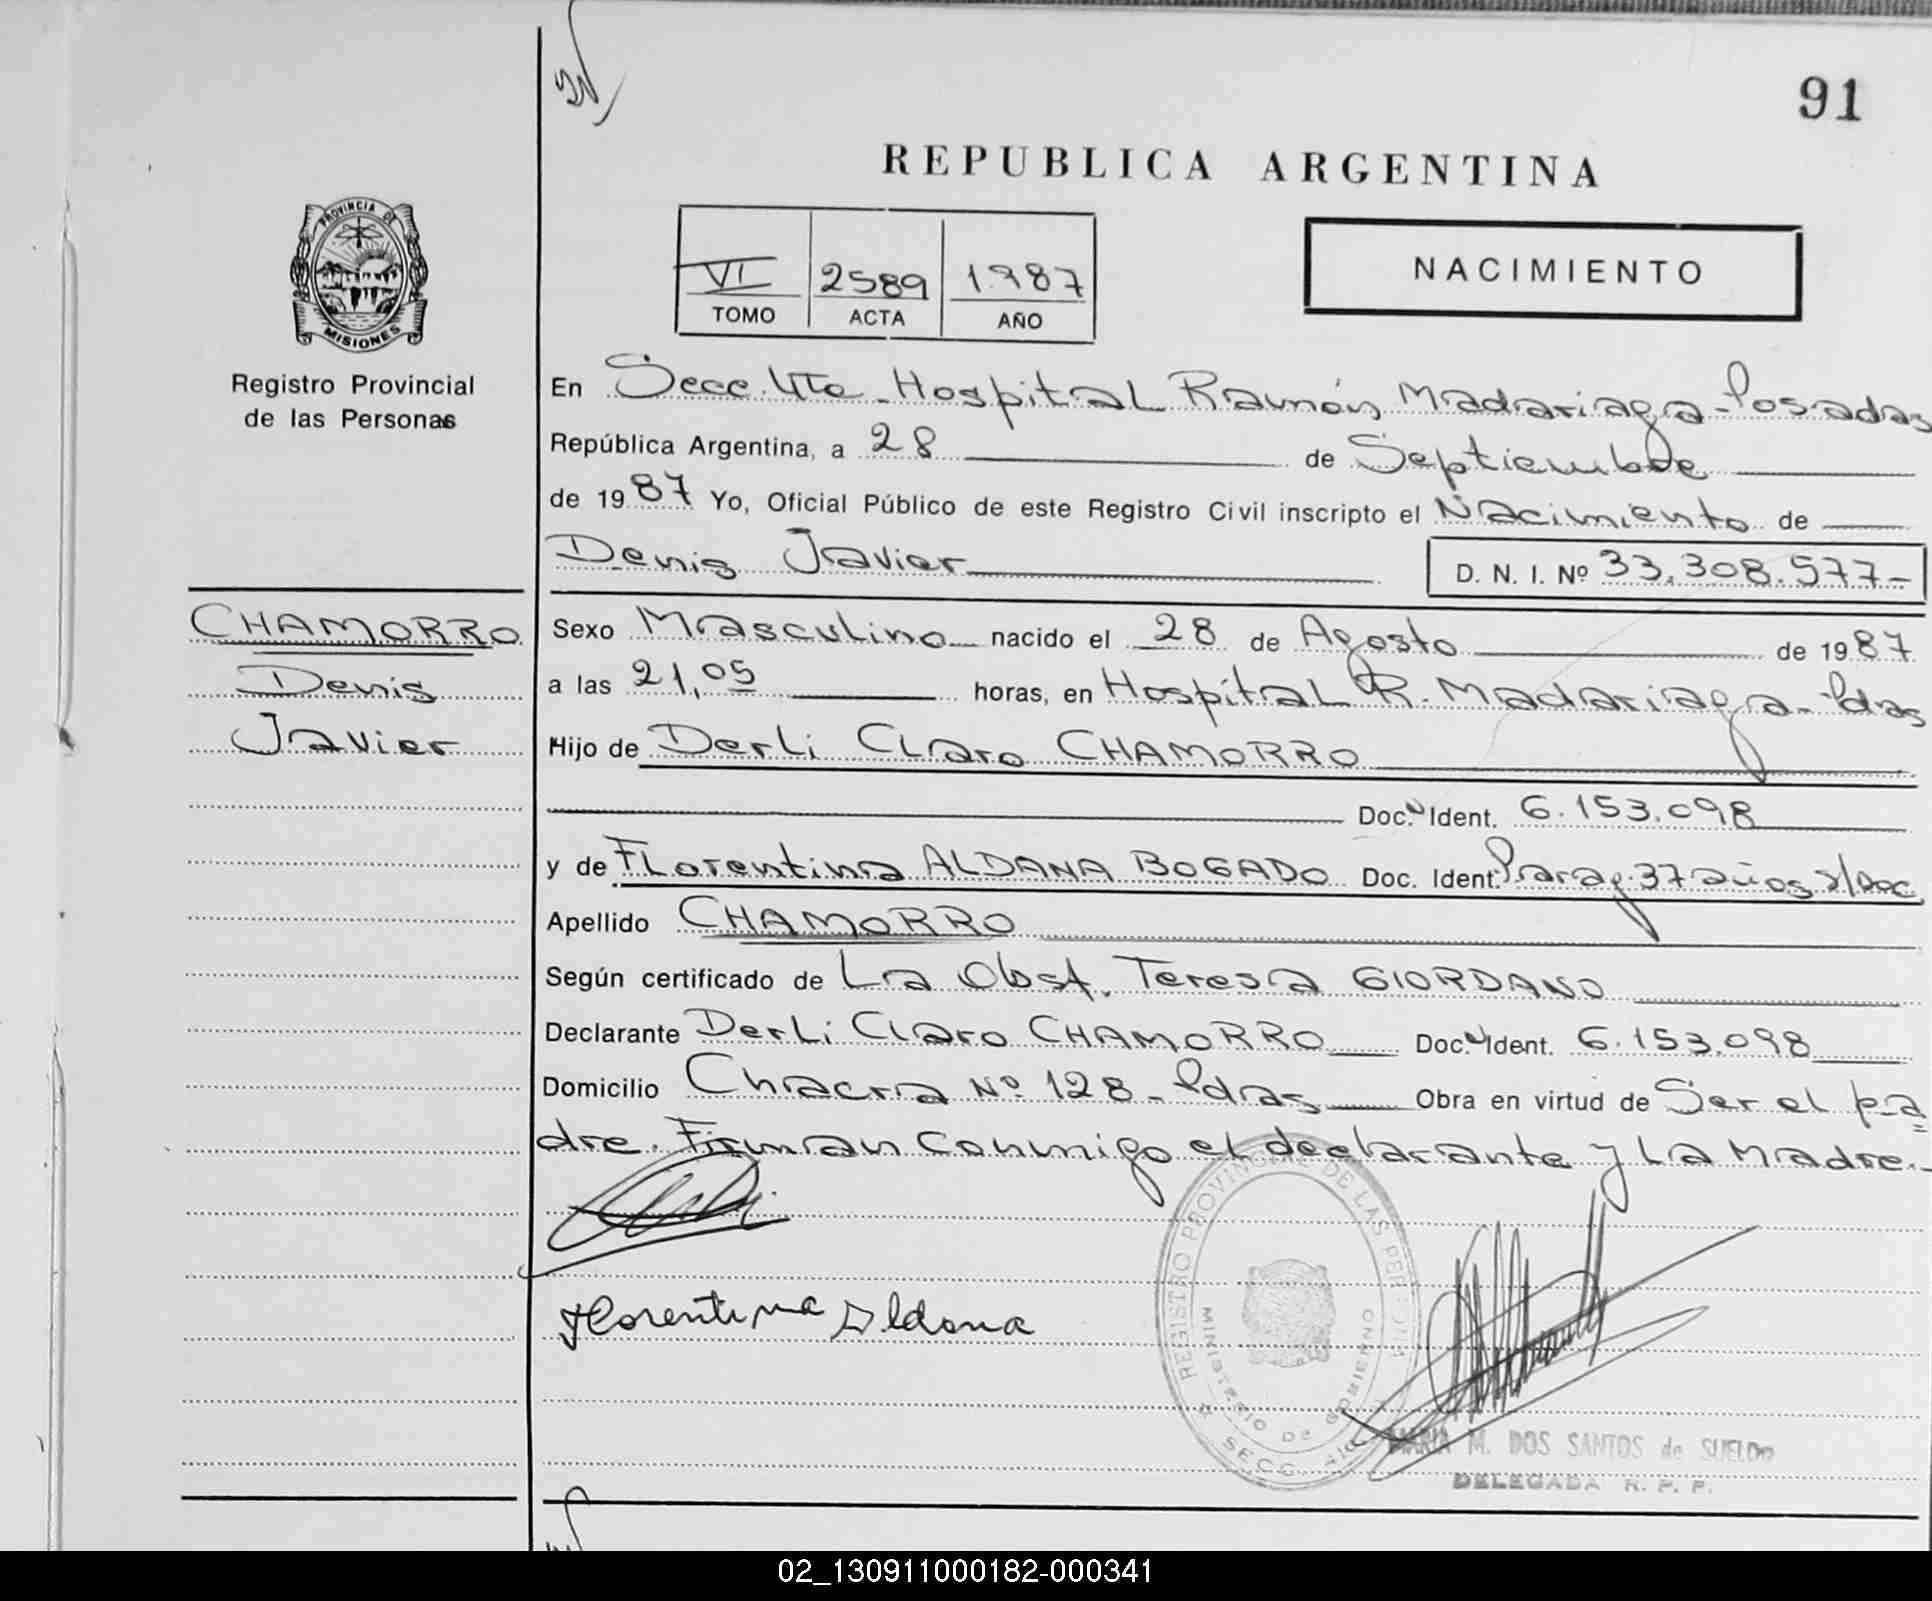 91
REPUBLICA ARGENTINA
PROVINCIA DE
MISIONES
Registro Provincial
de las Personas
VI 2589 1987
TOMO ACTA AÑO
NACIMIENTO
En Secc. 4ta - Hospital Ramón Madariaga - Posadas
República Argentina, a 28 de Septiembre
de 1987 Yo, Oficial Público de este Registro Civil inscripto el Nacimiento de
Denis Javier
D. N. I. Nº 33.308.577-
CHAMORRO
Denis
Javier
Sexo Masculino nacido el 28 de Agosto de 1987
a las 21,05 horas, en Hospital R. Madariaga - Pdas
Hijo de Derli Claro CHAMORRO
Doc. N Ident. 6.153.098
y de Florentina ALDANA BOGADO Doc. Ident. Parag. 37 años s/Doc.
Apellido CHAMORRO
Según certificado de La Obst. Teresa GIORDANO
Declarante Derli Claro CHAMORRO Doc. N Ident. 6.153.098
Domicilio Chacra Nº 128 - Pdas Obra en virtud de Ser el pa=
dre. Firman conmigo el declarante y La Madre.-
Florentina Aldana
REGISTRO PROVINCIAL DE LAS PERSONAS
MINISTERIO DE GOBIERNO
SECC. 4ta
MARIA M. DOS SANTOS de SUELDO
DELEGADA R. P. P.
02_130911000182-000341